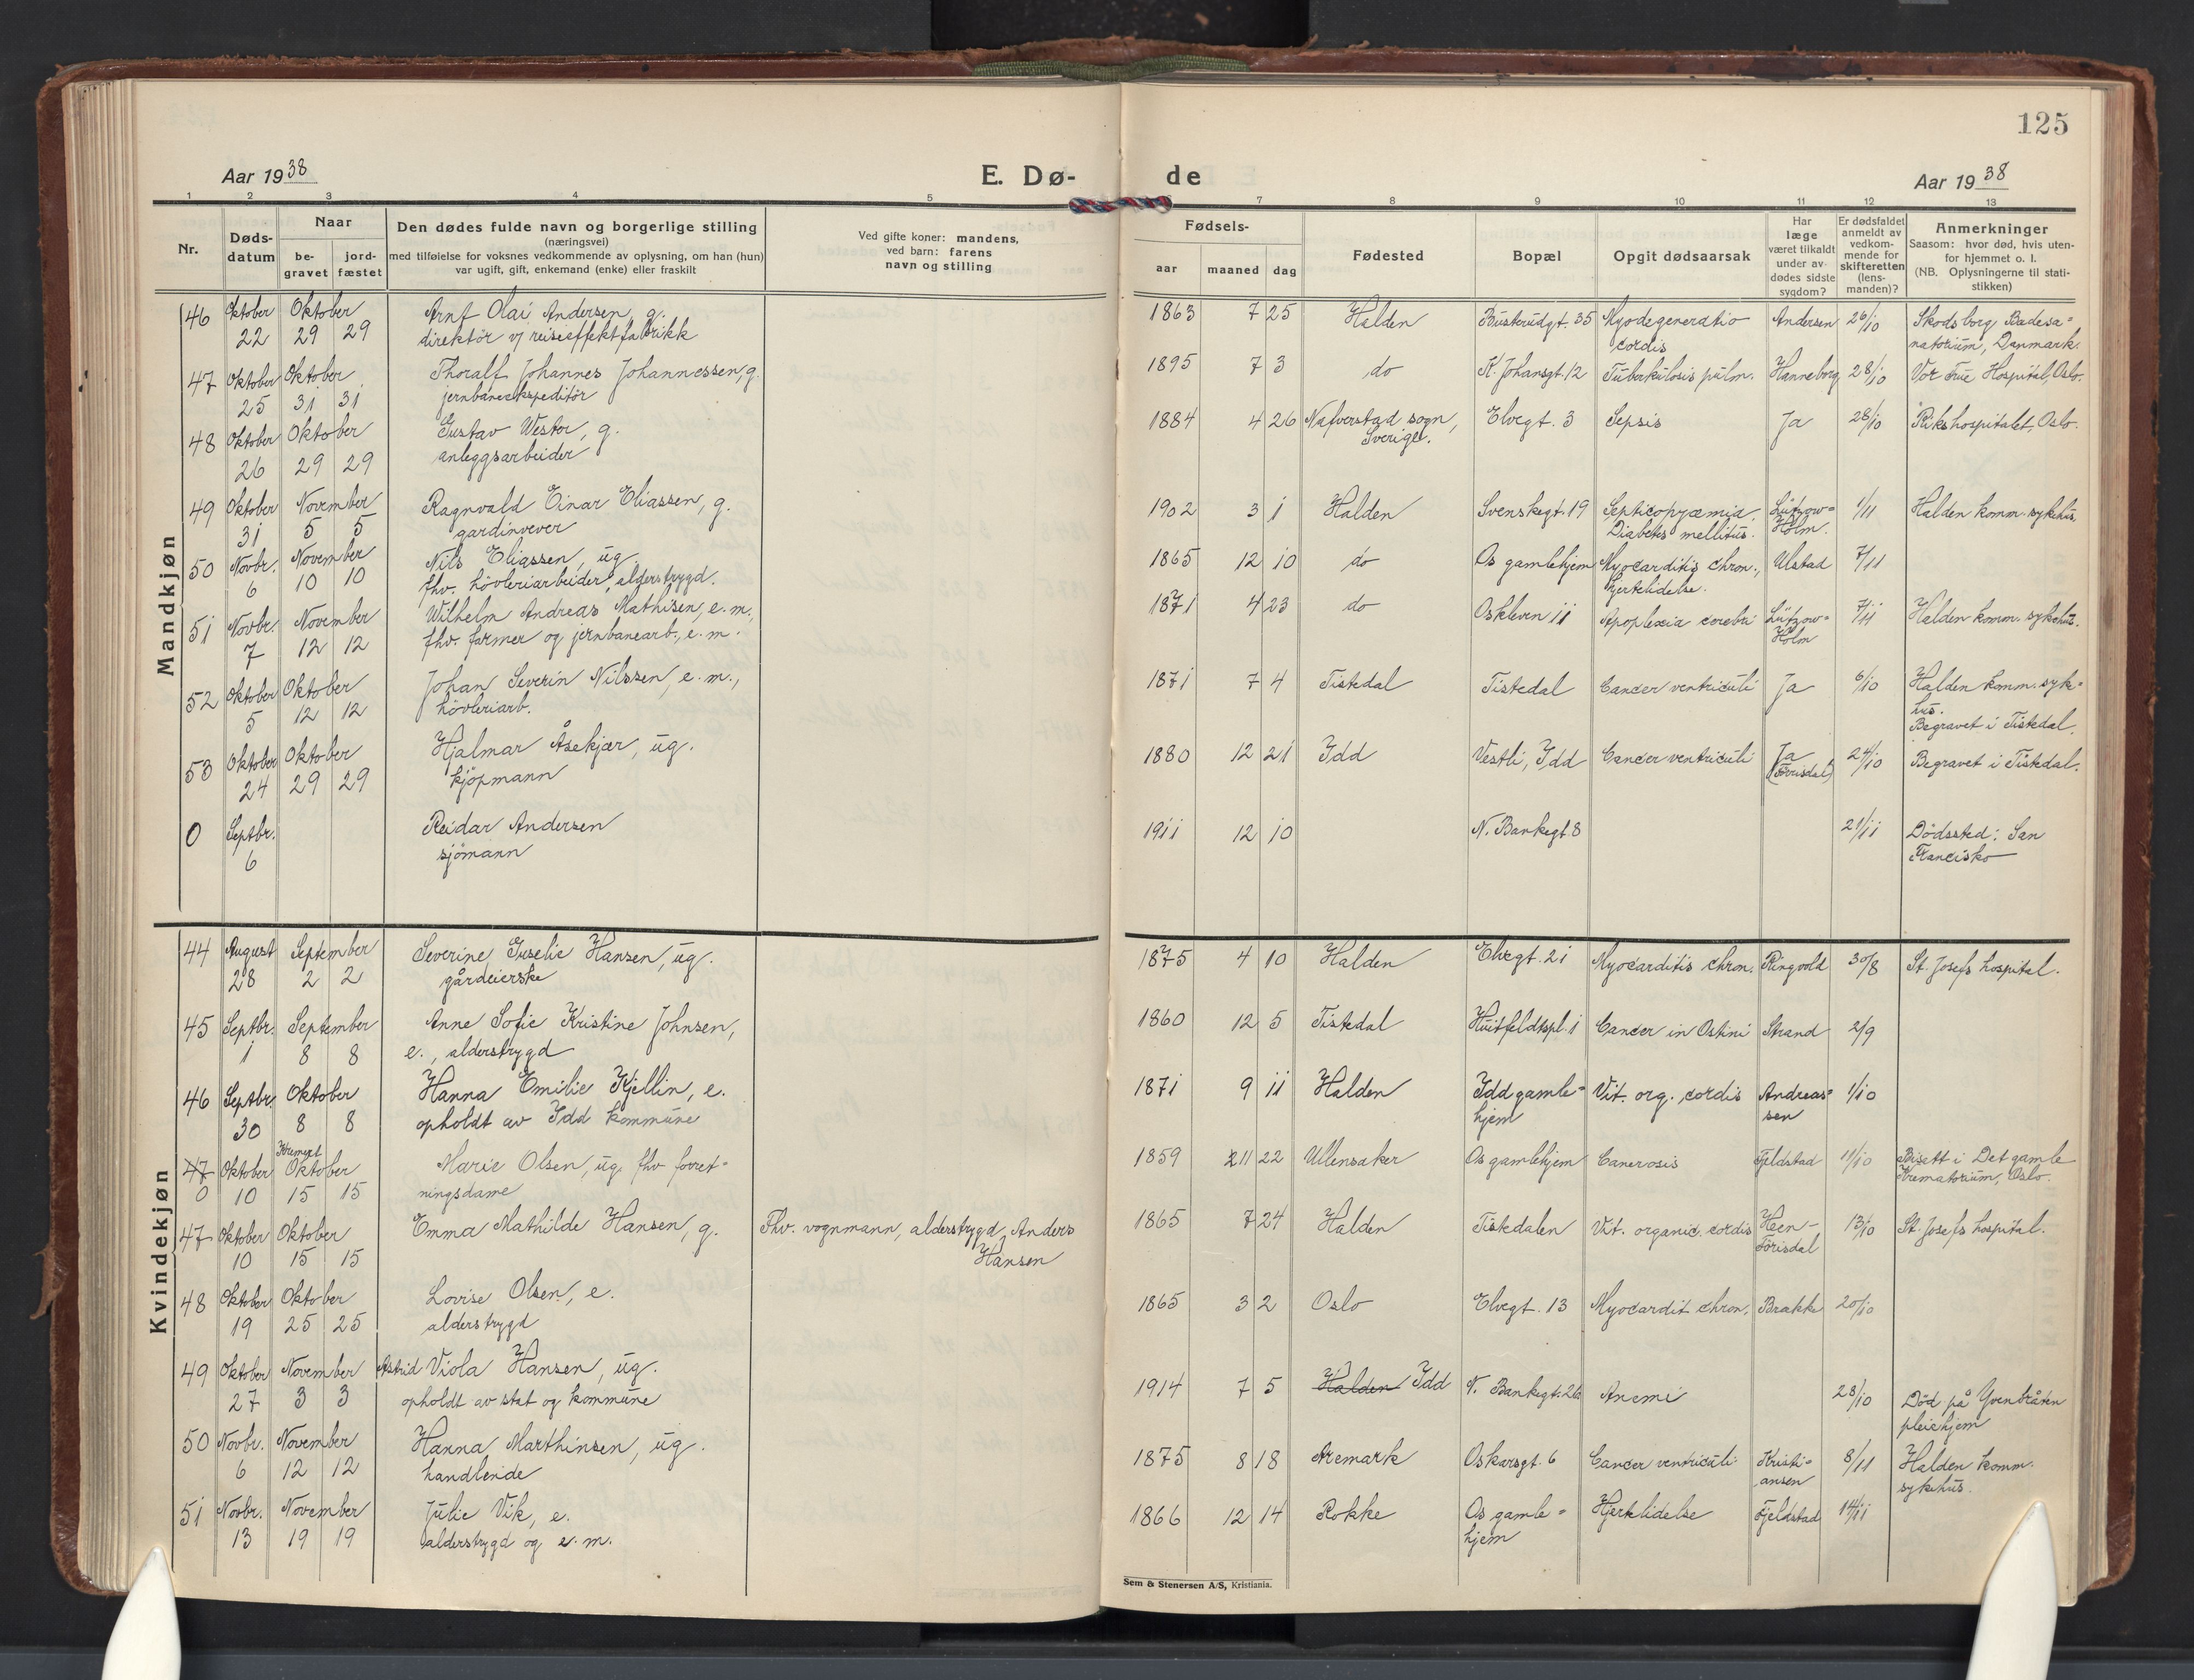 125
Aar 1938
E. Dø-
de
Aar 1938
1 2 3 4 5 7 8 9 10 11 12 13
Nr.
Døds-
datum
Naar
be-
gravet
jord-
fæstet
Den dødes fulde navn og borgerlige stilling
(næringsvei)
med tilføielse for voksnes vedkommende av oplysning, om han (hun)
var ugift, gift, enkemand (enke) eller fraskilt
Ved gifte koner: mandens,
ved barn: farens
navn og stilling
Fødsels-
aar maaned dag
Fødested
Bopæl
Opgit dødsaarsak
Har
læge
været tilkaldt
under av-
dødes sidste
sygdom?
Er dødsfaldet
anmeldt av
vedkom-
mende for
skifteretten
(lens-
manden)?
Anmerkninger
Saasom: hvor død, hvis uten-
for hjemmet o. l.
(NB. Oplysningerne til stati-
stikken)
Mandkjøn
46 Oktober Oktober Arnt Olai Andersen, g. 1863 7 25 Halden Buskrudgt. 35 Myodegeneratio Andersen 26/10 Skodsborg Badesa=
22 29 29 direktör v/ reiseeffektfabrikk cordis natorium, Danmark.
47 Oktober Oktober Thoralf Johannes Johannessen, g. 1895 7 3 do K. Johansgt. 12 Tuberkulosis pulm. Hanneborg 28/10 Vor Frue Hospital, Oslo.
25 31 31 jernbaneekspeditör
48 Oktober Oktober Gustav Westor, g. 1884 4 26 Nafverstad sogn, Elvegt. 3 Sepsis Ja 28/10 Rikshospitalet, Oslo.
26 29 29 anleggsarbeider Sverige.
49 Oktober November Ragnvald Einar Eliassen, g. 1902 3 1 Halden Svenskegt. 19 Septicopyæmia, Lützow= 1/11 Halden komm. sykehus
31 5 5 gardinvever Diabetes mellitus. Holm.
50 Novbr. November Nils Eliassen, ug. 1865 12 10 do Os gamlehjem Myocarditis chron., Ulstad 7/11
6 10 10 fhv. hövleriarbeider, alderstrygd. hjertelidelse.
51 Novbr. November Wilhelm Andreas Mathisen, e. m., 1871 4 23 do Oskleven 11 Apoplexia cerebri Lützow= 7/11 Halden komm. sykehus.
7 12 12 fhv. farmer og jernbanearb., e. m. Holm
52 Oktober Oktober Johan Severin Nilssen, e. m., 1871 7 4 Tistedal Tistedal Cancer ventriculi Ja 6/10 Halden komm. syk=
5 12 12 hövleriarb. hus.
Begravet i Tistedal.
53 Oktober Oktober Hjalmar Åsekjær, ug. 1880 12 21 Idd Vestli, Idd Cancer ventriculi Ja 24/10 Begravet i Tistedal.
24 29 29 kjöpmann
0 Septbr. Reidar Andersen 1911 12 10 N. Bankegt 8 21/11 Dödssted: San
6 sjömann Francisko
Kvindekjøn
44 August September Severine Guselie Hansen, ug. 1875 4 10 Halden Elvegt. 21 Myocarditis chron. Ringvold 30/8 St. Josefs hospital.
28 2 2 gårdeierske
45 Septbr. September Anne Sofie Kristine Johnsen, 1860 12 5 Tistedal Huitfeldtspl. 1 Cancer in Ostini Strand 2/9
1 8 8 e., alderstrygd
46 Septbr. Oktober Hanna Emilie Kjellin, e. 1871 9 11 Halden Idd gamle= Vit. org. cordis Andreas= 1/10
30 8 8 opholdt av Idd kommune hjem sen
Kremert
47 Oktober Oktober Marie Olsen, ug. fhv. forret= 1859 11 22 Ullensaker Os gamlehjem Cancrosis Fjeldstad 11/10 Bisatt i Det gamle
0 10 15 15 ningsdame Krematorium, Oslo.
47 Oktober Oktober Emma Mathilde Hansen, g. Fhv. vognmann, alderstrygd, Anders 1865 7 24 Halden Tistedalen Vit. organic. cordis Heen- 13/10 St. Josefs hospital.
10 15 15 Hansen Förisdal
48 Oktober Oktober Lovise Olsen, e. 1865 3 2 Oslo Elvegt. 13 Myocardit chron. Brakke 20/10
19 25 25 alderstrygd
49 Oktober November Astrid Viola Hansen, ug. 1914 7 5 Halden Idd N. Bankegt. 26 Anemi 28/10 Död på
27 3 3 opholdt av stat og kommune pleiehjem
50 Novbr. November Hanna Marthinsen, ug. 1875 8 18 Aremark Oskarsgt. 6 Cancer ventriculi Kristi= 8/11 Halden komm.
6 12 12 handlende ansen sykehus.
51 Novbr. November Julie Vik, e. 1866 12 14 Rokke Os gamle= Hjertelidelse Fjeldstad 14/11
13 19 19 alderstrygd og e. m. hjem
Sem & Stenersen A/S, Kristiania.